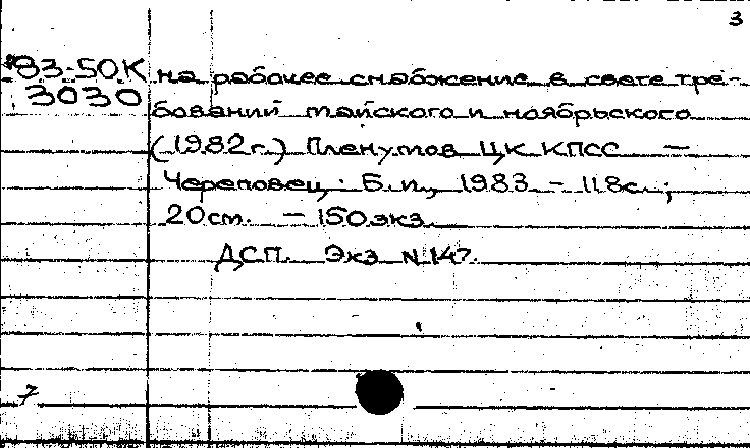 3
83-50К на рабочее снабжение в свете тре-
3030 бований майского и ноябрьского
(1982 г.) Пленумов ЦК КПСС —
Череповец: Б.и., 1983 - 118с.;
20см. — 150экз.
ДСП. Экз N 147.
7